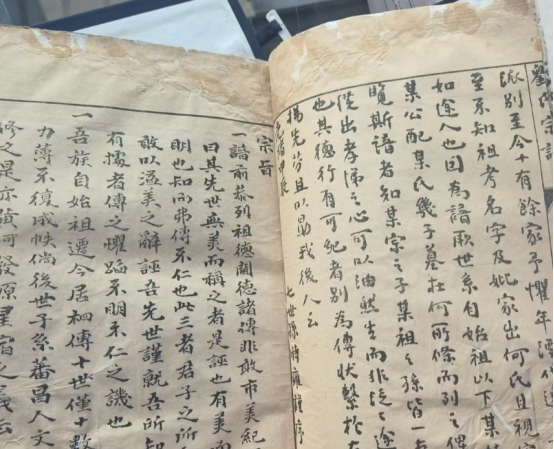 派別至今十有餘家予懼年湮代遠
至不知祖考名字及妣家出何氏且視
如途人也因為譜厥世系自始祖以下某
某公配某氏幾子墓在何所條而列之俾
覽斯譜者知某宗之子某祖之孫皆一
從出孝悌之心可以油然生而非泛泛途
也其德行有可紀者別為傳狀繫於
揚先芬且以勗我後人云
七世孫時雍謹序
宗旨
一譜前恭列祖德閫德諸傳非敢市美紀
曰其先世無美而稱之者是誣也有美而
明也知而弗傳不仁也此三者君子之所
敢以溢美之辭誣吾先世謹就吾所知
有據者傳之懼蹈不明不仁之譏也
一吾族自始祖遷今居衹傳十世僅十數
力薄不復成帙倘後世子系蕃昌人文
修之是亦可發原星宿之義云